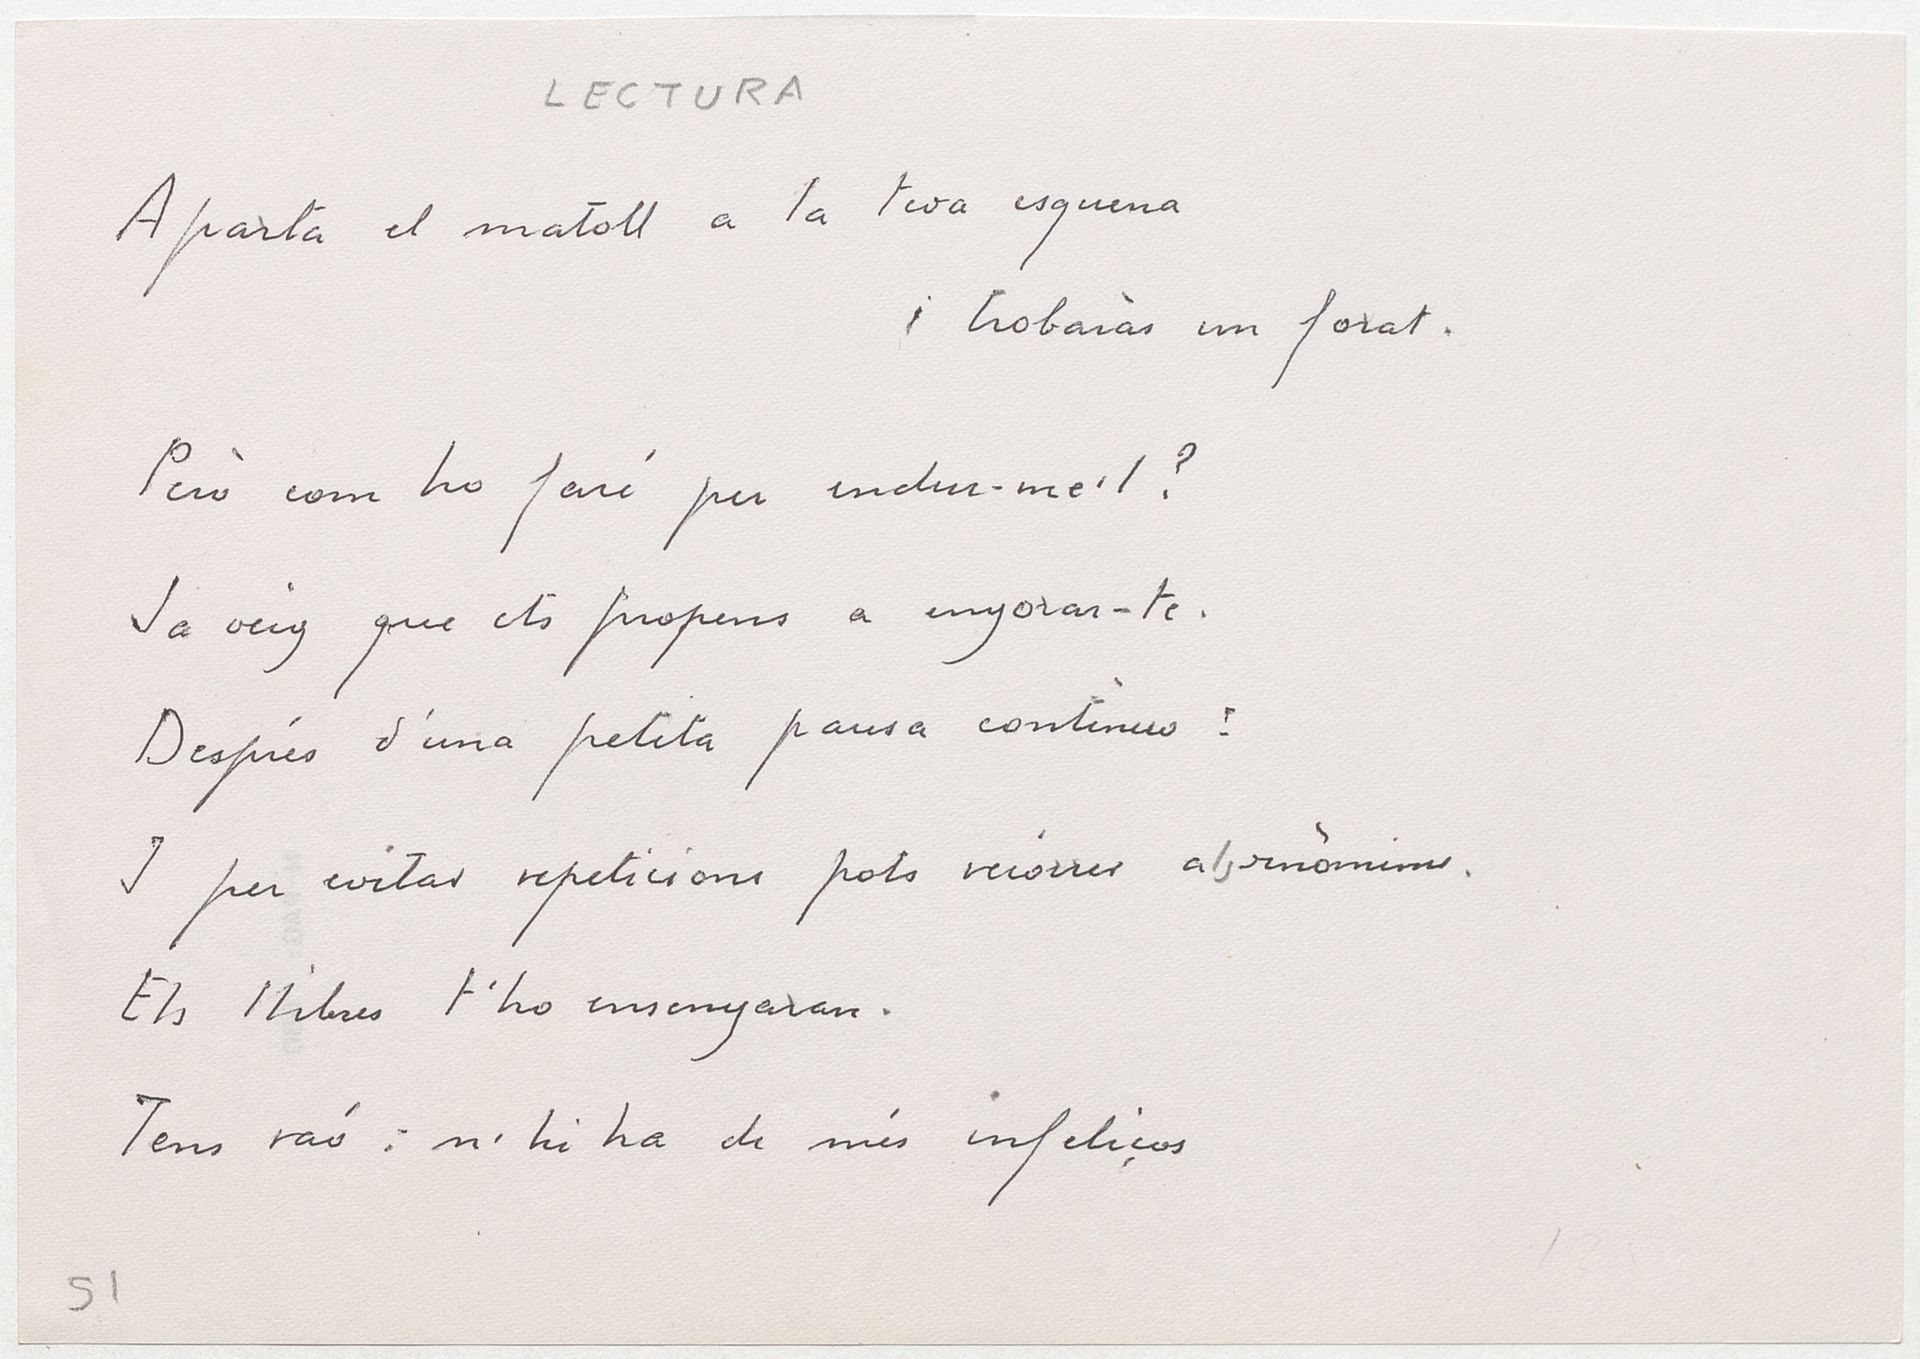 LECTURA
Aparta el matoll a la teva esquena
i trobaràs un forat.
Però com ho faré per endur-me'l?
Ja veig que ets propens a enyorar-te.
Després d'una petita pausa contìnuo:
I per evitar repeticions pots recórrer als
Els llibres t'ho ensenyaran.
Tens raó: n'hi ha de més infeliços
51